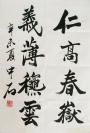 仁高春嶽
義薄穐雲
辛未夏中石